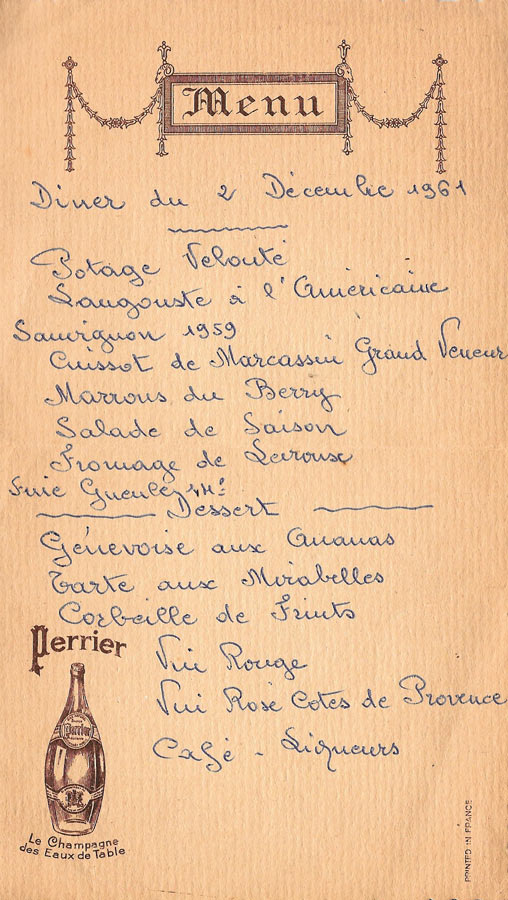 Menu
Diner du 2 Décembre 1961
Potage Velouté
Langouste à l'Américaine
Sauvignon 1959
Cuissot de Marcassin Grand Veneur
Marrons du Berry
Salade de Saison
Fromage de Levroux
Dessert
Génevoise aux Ananas
Tarte aux Mirabelles
Corbeille de Fruits
Perrier
Vin Rouge
Vin Rosé Cotes de Provence
Café - Liqueurs
Perrier
Le Champagne
des Eaux de Table
PRINTED IN FRANCE